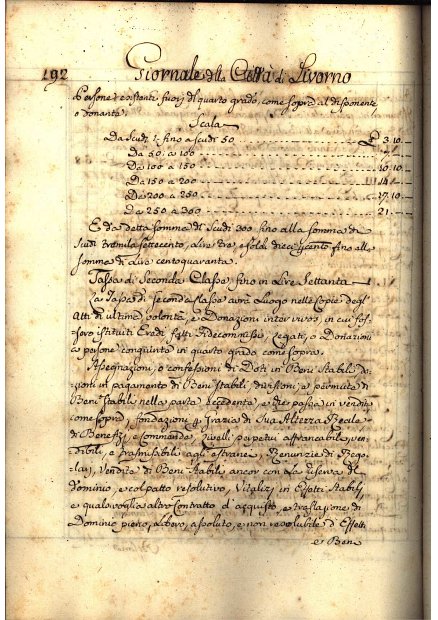 192 Giornale della Città di Livorno
Persone esistenti fuori di quarto grado, come sopra al disponente,
o donante.
Scala
Da Scudi 1. fino a scudi 50 3. 10. —
Da 50. a 100 7. —
Da 100 a 150 10. 10. —
Da 150 a 200 14. —
Da 200 a 250 17. 10. —
Da 250 a 300 21. —
E da detta somma di Scudi 300 fino alla somma di
Scudi tremila settecento, a lire tre, e soldi dieci fino alla
somma di Lire centoquaranta.
Tassa di Seconda Classe, fino in Lire Settanta
La Tassa di seconda classe avrà Luogo nelle Copie degl'
Atti di ultime volontà, e Donazioni inter vivos in cui fos-
sero istituiti Eredi, fatti Fidecommissi, Legati, o Donazioni
a persone congiunte in quarto grado come sopra.
Assegnazioni, o confessioni di Doti in Beni Stabili, do-
zioni in pagamento di Beni stabili, divisioni, e permute di
Beni stabili nella parte eccedente, e che passa in vendita
come sopra, fondazioni p. grazia di Sua Altezza Reale
di Benefizi, e Commende, Livelli perpetui affrancabili, ven-
dibili, e trasmissibili agli estranei, Renunzie di Rego-
lari, vendite di Beni Stabili, ancor con la riserva di
dominio, e col patto resolutivo, Vitalizi in Effetti Stabili,
e qualsivoglia altro Contratto d'acquisto, e traslazione di
Dominio pieno, libero, assoluto, e non revolubile d'Effetti
e Beni